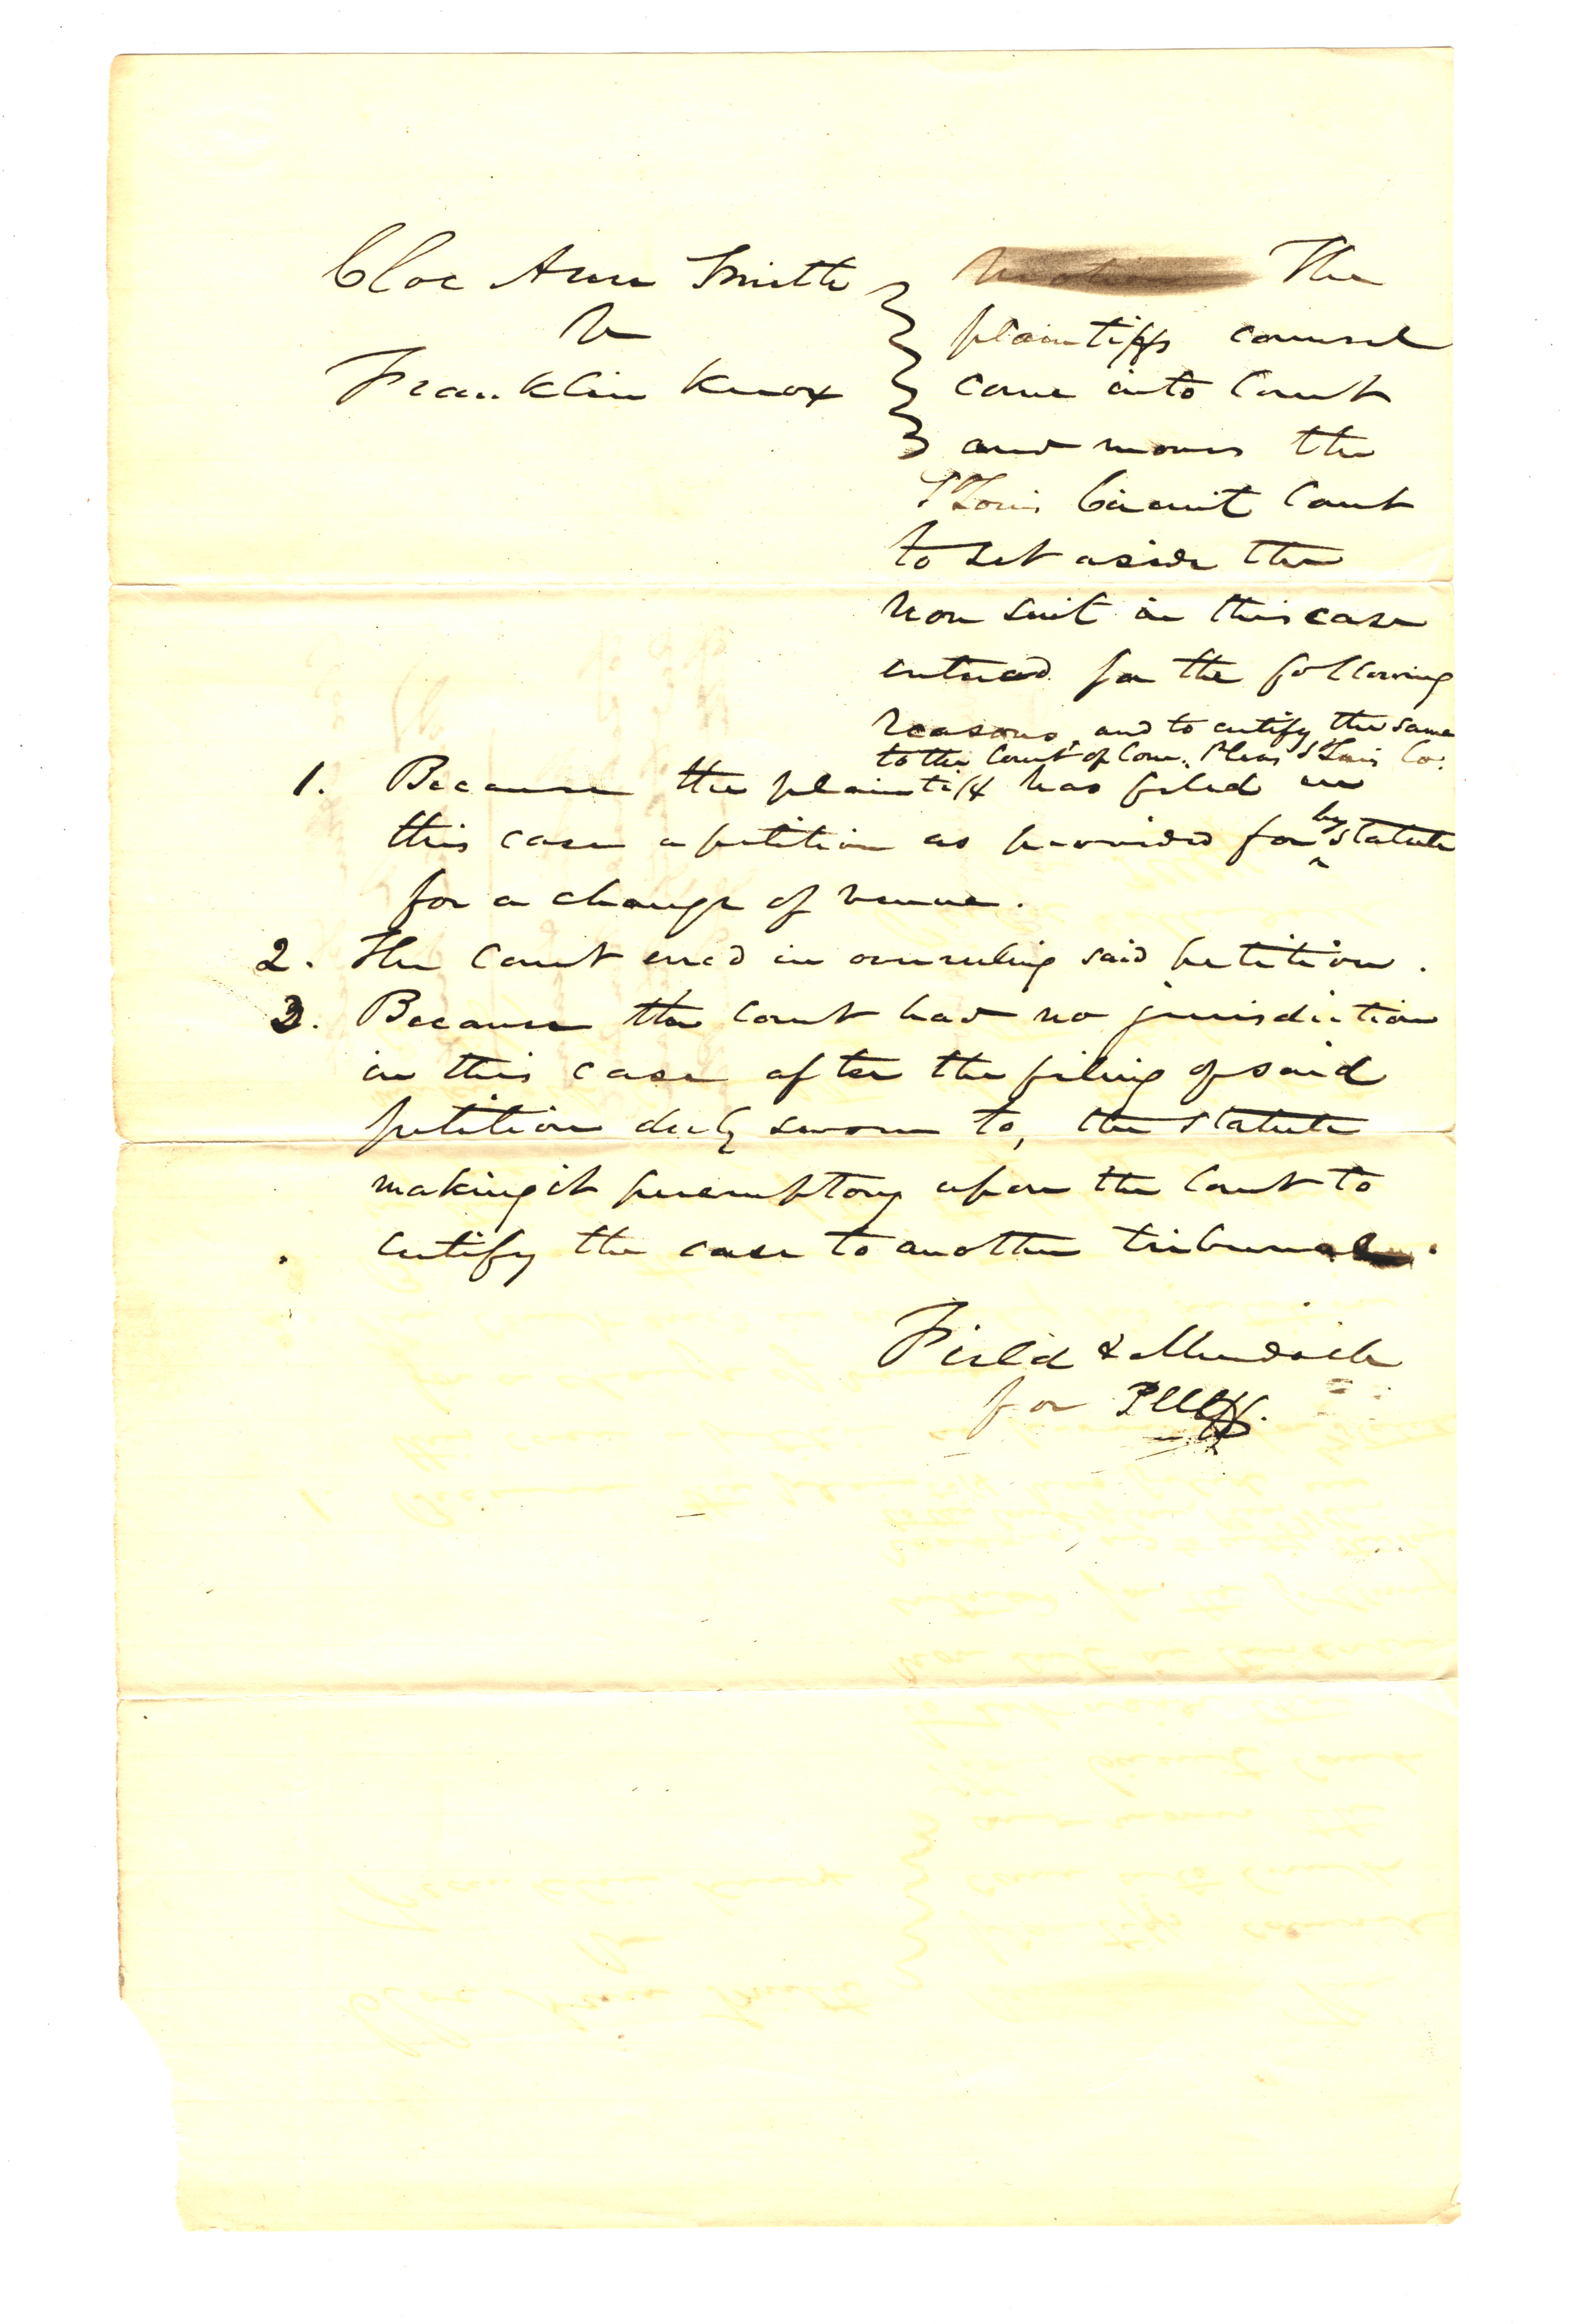 Cloe Ann Smith
vs
Franklin Knox
The
plaintiffs counsel
come into Court
and moves the
St Louis Circuit Court
to set aside the
non suit in this case
entered for the following
reasons, and to certify the same
to the Court of Com. Pleas St Louis Co.
1. Because the plaintiff has filed in
this case a petition as provided for by statute
for a change of venue.
2. The Court erred in overruling said petition.
3. Because the Court had no jurisdiction
in this case after the filing of said
petition duly sworn to, the statute
making it peremptory upon the Court to
certify the case to another tribunal.
Field & Murdoch
for Pltff.